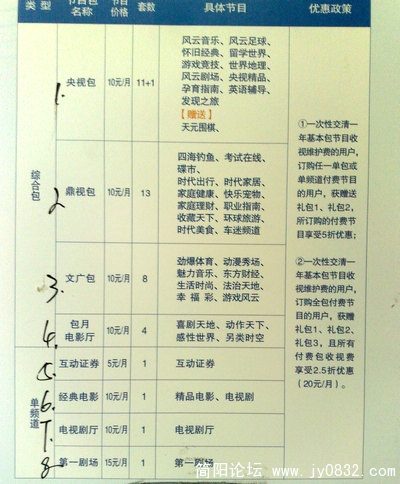 类 型
节目包
名称
节目
价格
套数
具体节目
优惠政策
综合包
1.
央视包
10元/月
11+1
风云音乐、风云足球、
怀旧经典、留学世界、
游戏竞技、世界地理、
风云剧场、央视精品、
孕育指南、英语辅导、
发现之旅
【赠送】
天元围棋、
2
鼎视包
10元/月
13
四海钓鱼、考试在线、
碟市、
时代出行、时代家居、
家庭健康、快乐宠物、
家庭理财、职业指南、
收藏天下、环球旅游、
时代美食、车迷频道
3.
文广包
10元/月
8
劲爆体育、动漫秀场、
魅力音乐、东方财经、
生活时尚、法治天地、
幸 福 彩、游戏风云
4.
包月
电影厅
10元/月
4
喜剧天地、动作天下、
感性世界、另类时空
单频道
5.
互动证券
5元/月
1
互动证券
6.
经典电影
10元/月
1
精品电影、电视剧
7.
电视剧厅
10元/月
1
电视剧厅
8
第一剧场
15元/月
1
第一剧场
①一次性交清一
年基本包节目收
视维护费的用户，
订购任一单包或
单频道付费节目
的用户，获赠送
礼包1、礼包2，
所订购的付费节
目享受5折优惠；
②一次性交清一
年基本包节目收
视维护费的用户，
订购全包付费节
目的用户，获赠
礼包1、礼包2、
礼包3，且所有
付费包收视费
享受2.5折优惠
（20元/月）。
简阳论坛 www.jy0832.com